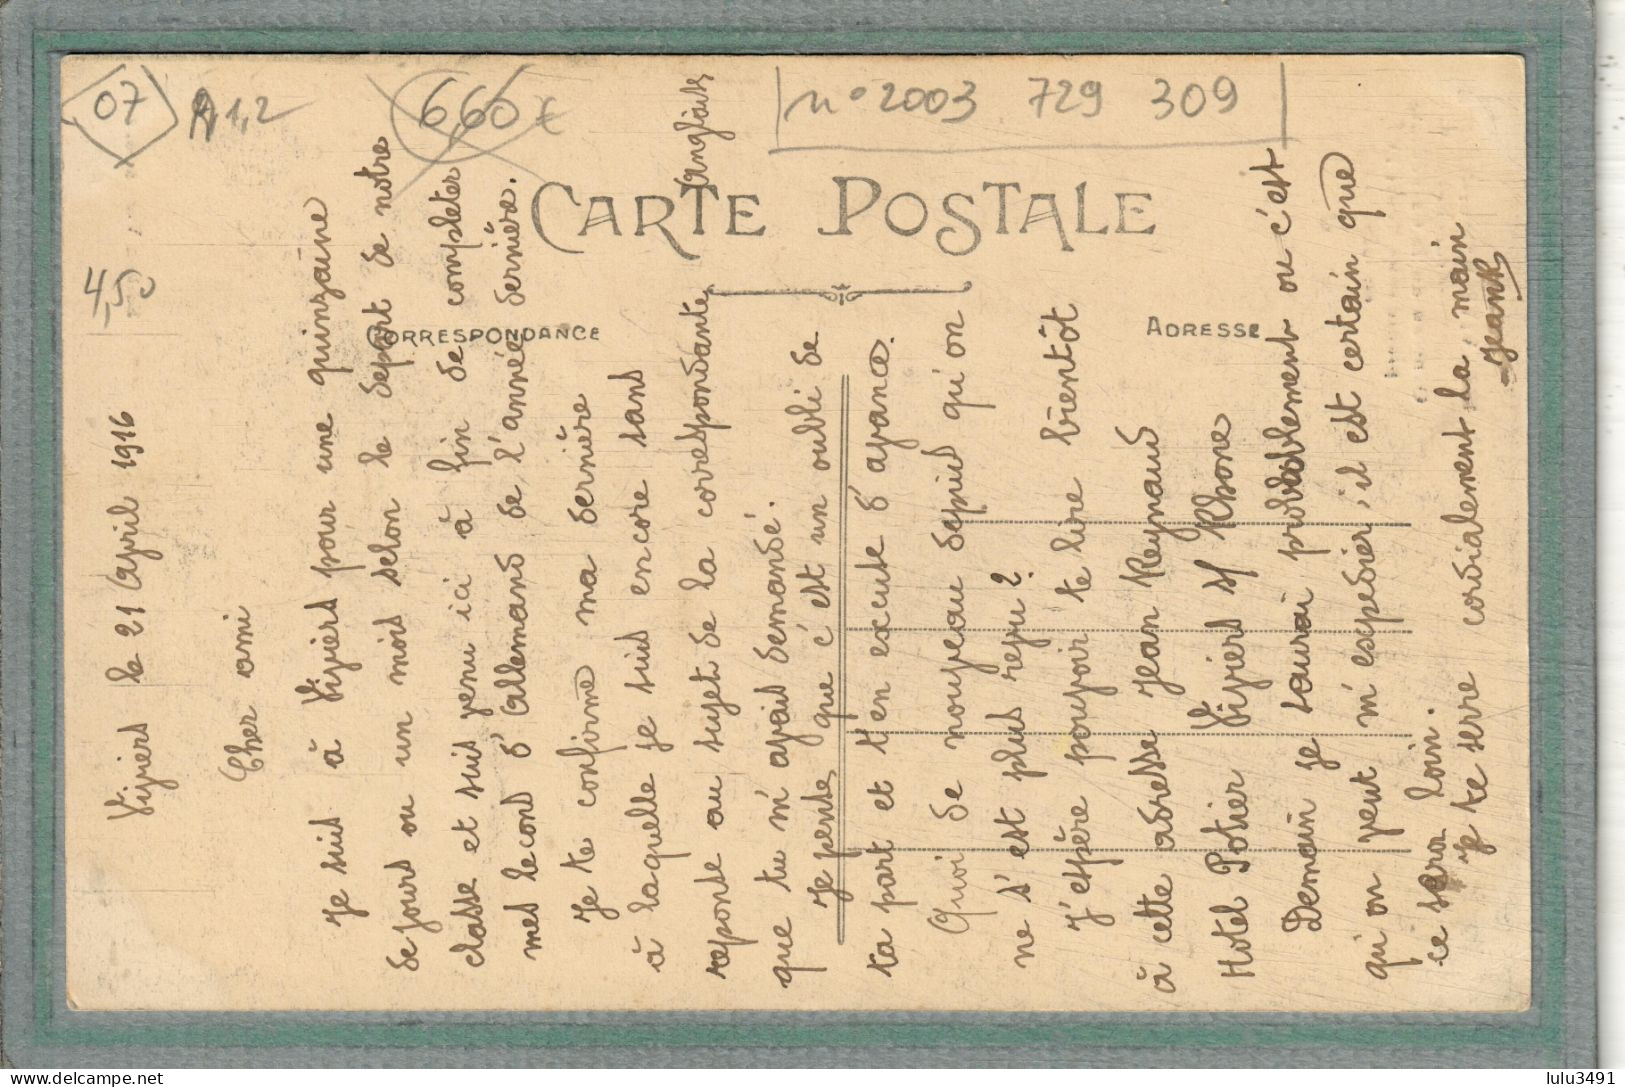 07
A1,2
6,60 €
n° 2003 729 309
4,50
CARTE POSTALE
CORRESPONDANCE
ADRESSE
Viviers le 21 Avril 1916
Cher ami
Je suis à Viviers pour une quinzaine
de jours ou un mois selon le depart de notre
classe et suis venu ici à fin de completer
mes lecons d'Allemand de l'année dernière.
Je te confirme ma dernière
à laquelle je suis encore sans
reponse au sujet de la correspondante Anglaise
que tu m'avais demandé.
Je pense que c'est un oubli de
ta part et t'en excuse d'avance.
Quoi de nouveau depuis qu'on
ne s'est plus revu?
J'espère pouvoir te lire bientôt
à cette adresse Jean Reynaud
Hotel Potier Viviers s/ Rhone
Demain je saurai probablement ou c'est
qu'on veut m'expedier, il est certain que
ce sera loin.
Je te serre cordialement la main
JeanR
lulu3491